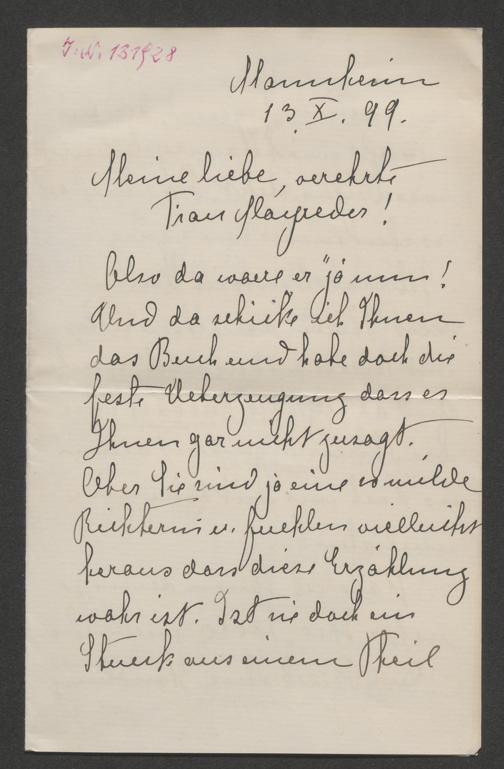 J. N. 131928
Mannheim
13. X. 99.
Meine liebe, verehrte
Frau Mayreder!
Also da waere er "ja nun!
Und da schicke ich Ihnen
das Buch und habe doch die
feste Ueberzeugung dass es
Ihnen gar nicht zusagt.
Aber Sie sind ja eine so milde
Richterin u. fuehlen vielleicht
heraus dass diese Erzählung
wahr ist. Ist sie doch ein
Stueck aus einem Theil